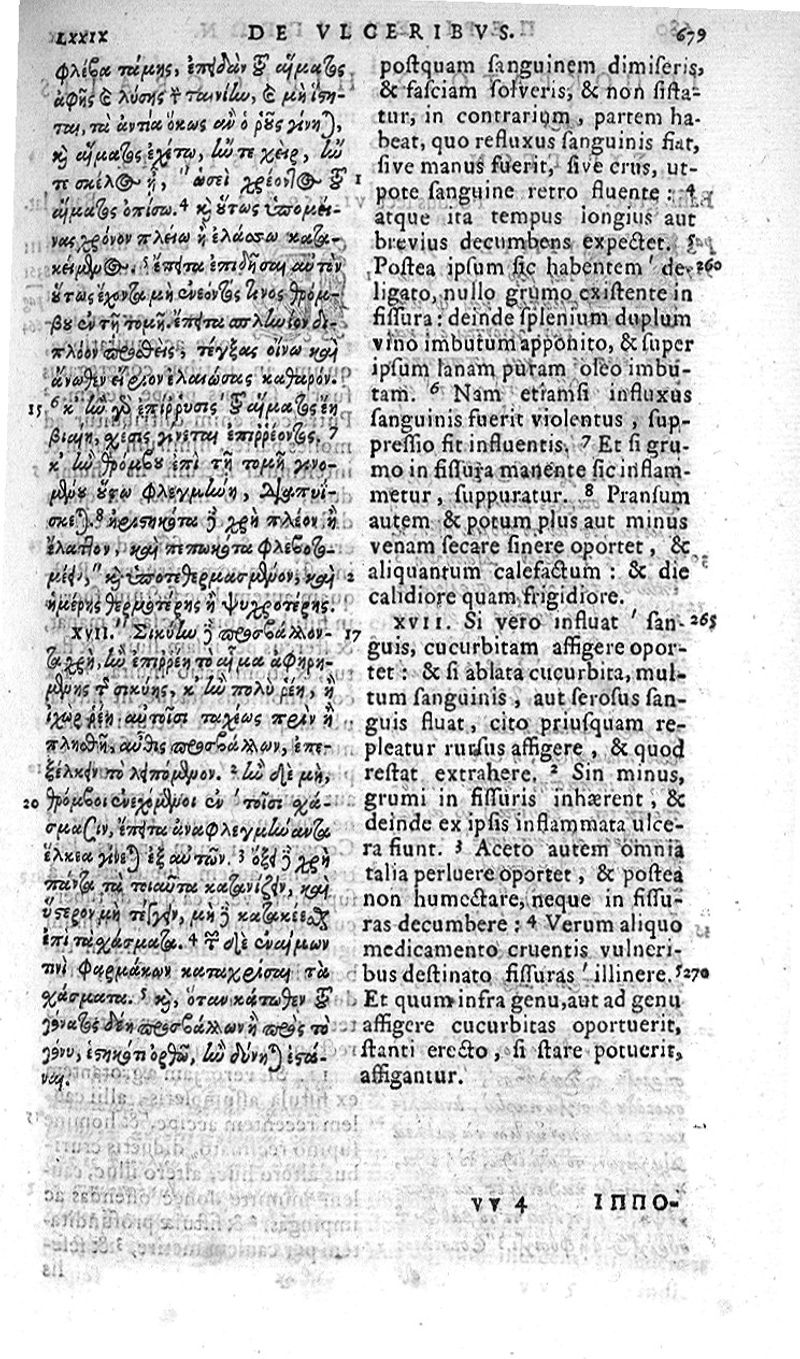 LXXIX DE VLCERIBVS. 679
φλέβα τάμῃς, ἐπὴν τοῦ αἵματος
ἀφῇς καὶ λύσῃς τὴν ταινίην, καὶ μὴ ἵστη-
ται, τὰ ἀντία ὅκως ἂν ὁ ῥοῦς γίνηται,
καὶ αἵματος ἐχέτω, ἤν τε χεὶρ, ἤν
τε σκέλος ᾖ, " ὡσεὶ ῥέοντος τοῦ 1
αἵματος ὀπίσω. 4 καὶ οὕτως ὑπομεί-
νας χρόνον πλείω ἢ ἐλάσσω κατα-
κείμενος. 5 ἔπειτα ἐπιδῆσαι αὐτὸν
οὕτως ἔχοντα μὴ ἐνεόντος τινὸς θρόμ-
βου ἐν τῇ τομῇ. ἔπειτα σπληνίον δι-
πλόον προσθεὶς, τέγξας οἴνῳ καὶ
ἄνωθεν εἴριον ἐλαιώσας καθαρόν.
15 6 κἢν γὰρ ἐπίρρυσις τοῦ αἵματος ἔῃ
βιαίη, χέσις γίνεται ἐπιρρέοντος. 7
κἢν θρόμβου ἐπὶ τῇ τομῇ γινο-
μένου οὕτω φλεγμήνῃ, διαπυΐ-
σκεται. 8 ἠριστηκότα δὲ χρὴ πλέον ἢ
ἔλαττον, καὶ πεπωκότα φλεβοτο-
μέειν, " καὶ ὑποτεθερμασμένον, καὶ 2
ἡμέρης θερμοτέρης ἢ ψυχροτέρης.
XVII. " Σικύην δὲ προσβάλλον- 17
τα χρὴ, ἢν ἐπιρρέῃ τὸ αἷμα ἀφῃρη-
μένης τῆς σικύης, κἢν πολὺ ῥέῃ, ἢ
ἰχὼρ ῥέῃ αὐτοῖσι ταχέως πρὶν ἢ
πλησθῇ, αὖθις προσβάλλων, ἐπε-
ξέλκειν τὸ λειπόμενον. 2 ἢν δὲ μὴ,
20 θρόμβοι ἐνεχόμενοι ἐν ' τοῖσι χά-
σμασιν, ἔπειτα ἀναφλεγμήναντα
ἕλκεα γίνεται ἐξ αὐτῶν. 3 ὄξει δὲ χρὴ
πάντα τὰ τοιαῦτα κατανίζειν, καὶ
ὕστερον μὴ τέγγειν, μὴ δὲ κατακέεσθαι
ἐπὶ τὰ χάσματα. 4 τῶν δὲ ἐναίμων
τινὶ φαρμάκων καταχρίσαι τὰ
χάσματα. 5 καὶ, ὅταν κάτωθεν τοῦ
γόνατος δέῃ προσβάλλων ἢ πρὸς τὸ
γόνυ, ἑστηκότι ὀρθῷ, ἢν δύνηται ἑστά-
ναι.
postquam sanguinem dimiseris,
& fasciam solveris, & non sista-
tur, in contrarium, partem ha-
beat, quo refluxus sanguinis fiat,
sive manus fuerit, sive crus, ut-
pote sanguine retro fluente : 4
atque ita tempus longius aut
brevius decumbens expectet. 5
Postea ipsum sic habentem ' de- 260
ligato, nullo grumo existente in
fissura : deinde splenium duplum
vino imbutum apponito, & super
ipsum lanam puram oleo imbu-
tam. 6 Nam etiamsi influxus
sanguinis fuerit violentus, sup-
pressio fit influentis. 7 Et si gru-
mo in fissura manente sic inflam-
metur, suppuratur. 8 Pransum
autem & potum plus aut minus
venam secare sinere oportet, &
aliquantum calefactum : & die
calidiore quam frigidiore.
XVII. Si vero influat ' san- 265
guis, cucurbitam affigere opor-
tet : & si ablata cucurbita, mul-
tum sanguinis, aut serosus san-
guis fluat, cito priusquam re-
pleatur rursus affigere, & quod
restat extrahere. 2 Sin minus,
grumi in fissuris inhærent, &
deinde ex ipsis inflammata ulce-
ra fiunt. 3 Aceto autem omnia
talia perluere oportet, & postea
non humectare, neque in fissu-
ras decumbere : 4 Verum aliquo
medicamento cruentis vulneri-
bus destinato fissuras ' illinere. 5 270
Et quum infra genu, aut ad genu
affigere cucurbitas oportuerit,
stanti erecto, si stare potuerit,
affigantur.
VV 4 ΙΠΠΟ-